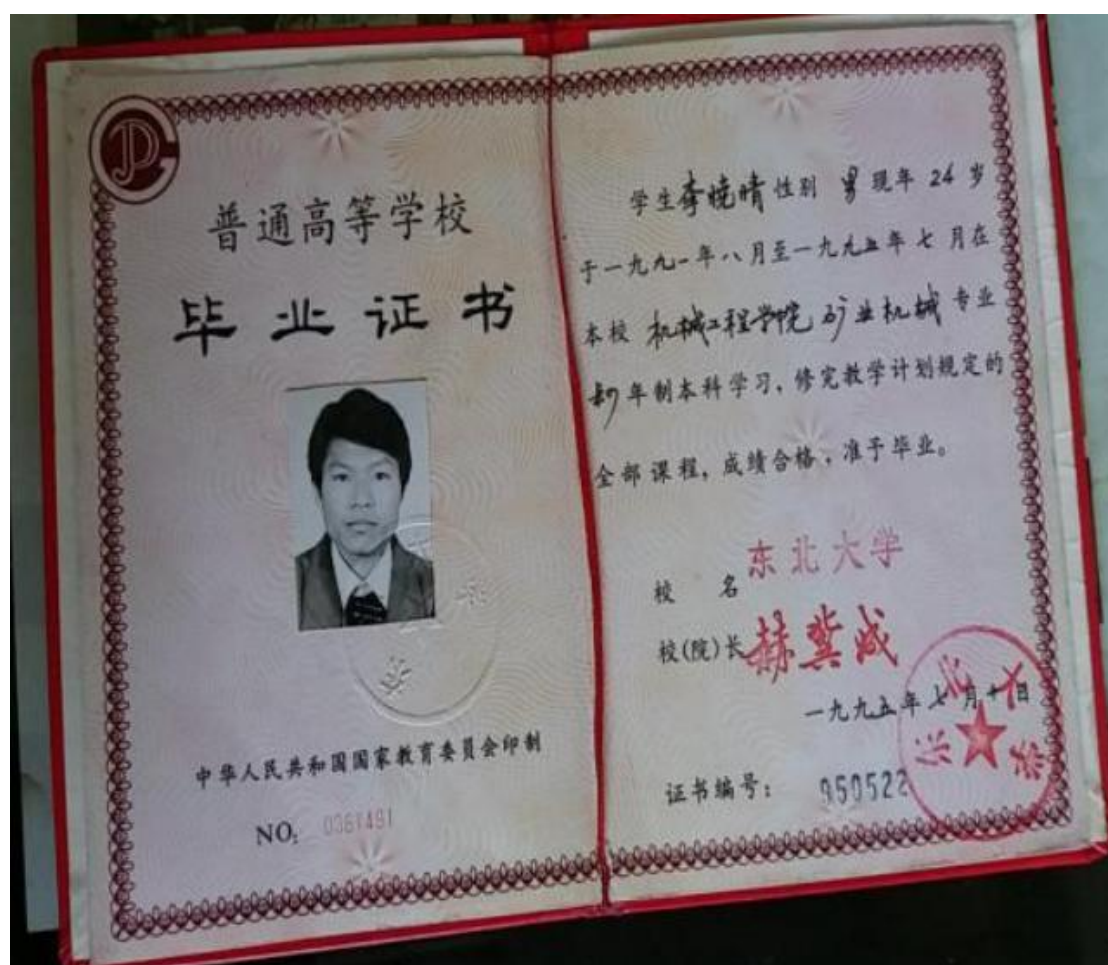 普通高等学校
毕业证书
中华人民共和国国家教育委员会印制
NO:
学生李晓晴性别 男现年 24 岁
于一九九一年八月至一九九五年七月在
本校 机械工程学院 矿业机械 专业
四年制本科学习，修完教学计划规定的
全部课程，成绩合格，准予毕业。
校 名 东北大学
校(院)长 赫冀成
一九九五年七月十日
证书编号： 950522